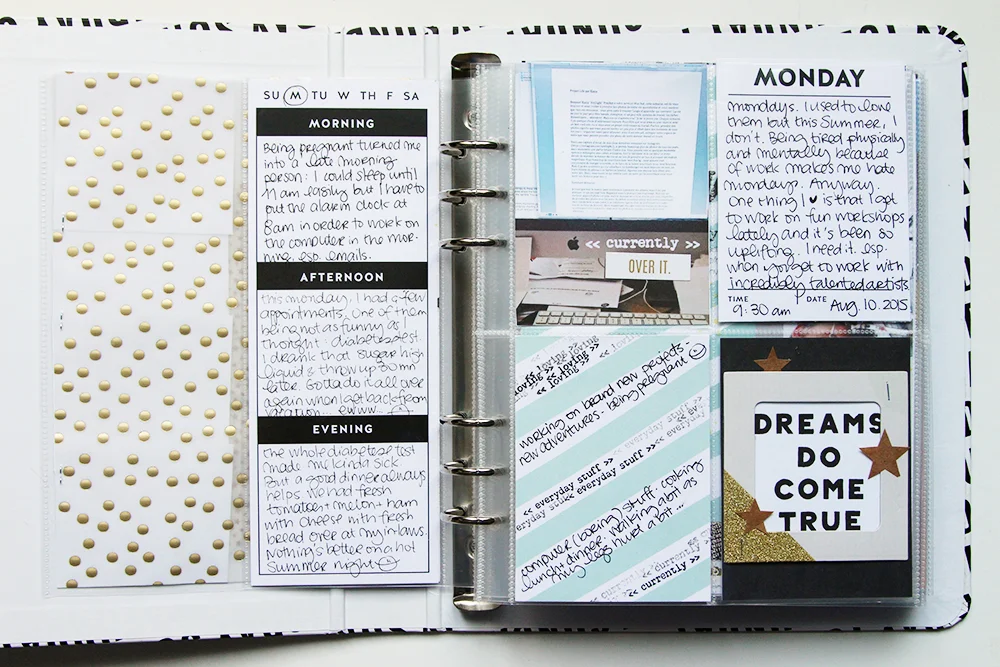 SU M TU W TH F SA
MORNING
Being pregnant turned me
into a late morning
person: I could sleep until
11 am easily but I have to
put the alarm clock at
8am in order to work on
the computer in the mor-
ning esp. emails.
AFTERNOON
this monday, I had a few
appointments. One of them
being not as funny as I
thought: diabetes test
I drank that sugar high
liquid & throw up 30mn
later. Gotta do it all over
again when I get back from
vacation... ewww...
EVENING
the whole diabetese test
made my kinda sick
But a good dinner always
helps. We had fresh
tomatoes + melon + ham
with cheese with fresh
bread over at my inlaws.
Nothing's better on a hot
Summer night
<< currently >>
OVER IT.
MONDAY
mondays. I used to love
them but this Summer, I
don't. Being tired physically
and mentally because
of work makes me hate
mondays. Anyway.
One thing I ♥ is that I get
to work on fun workshops
lately and it's been so
uplifting. I need it. esp.
when you get to work with
incredibly talented artists
TIME 9:30 am DATE Aug. 10. 2015
loving >> << loving
working on brand new projects -
new adventures - Being pregnant
<< everyday stuff >>
<< everyday
everyday stuff >>
<< everyday stuff >>
computer (boring) stuff. cooking
lunch + dinner. walking a bit as
my legs hurt a bit ...
<< currently >>
<< currently >>
DREAMS
DO
COME
TRUE